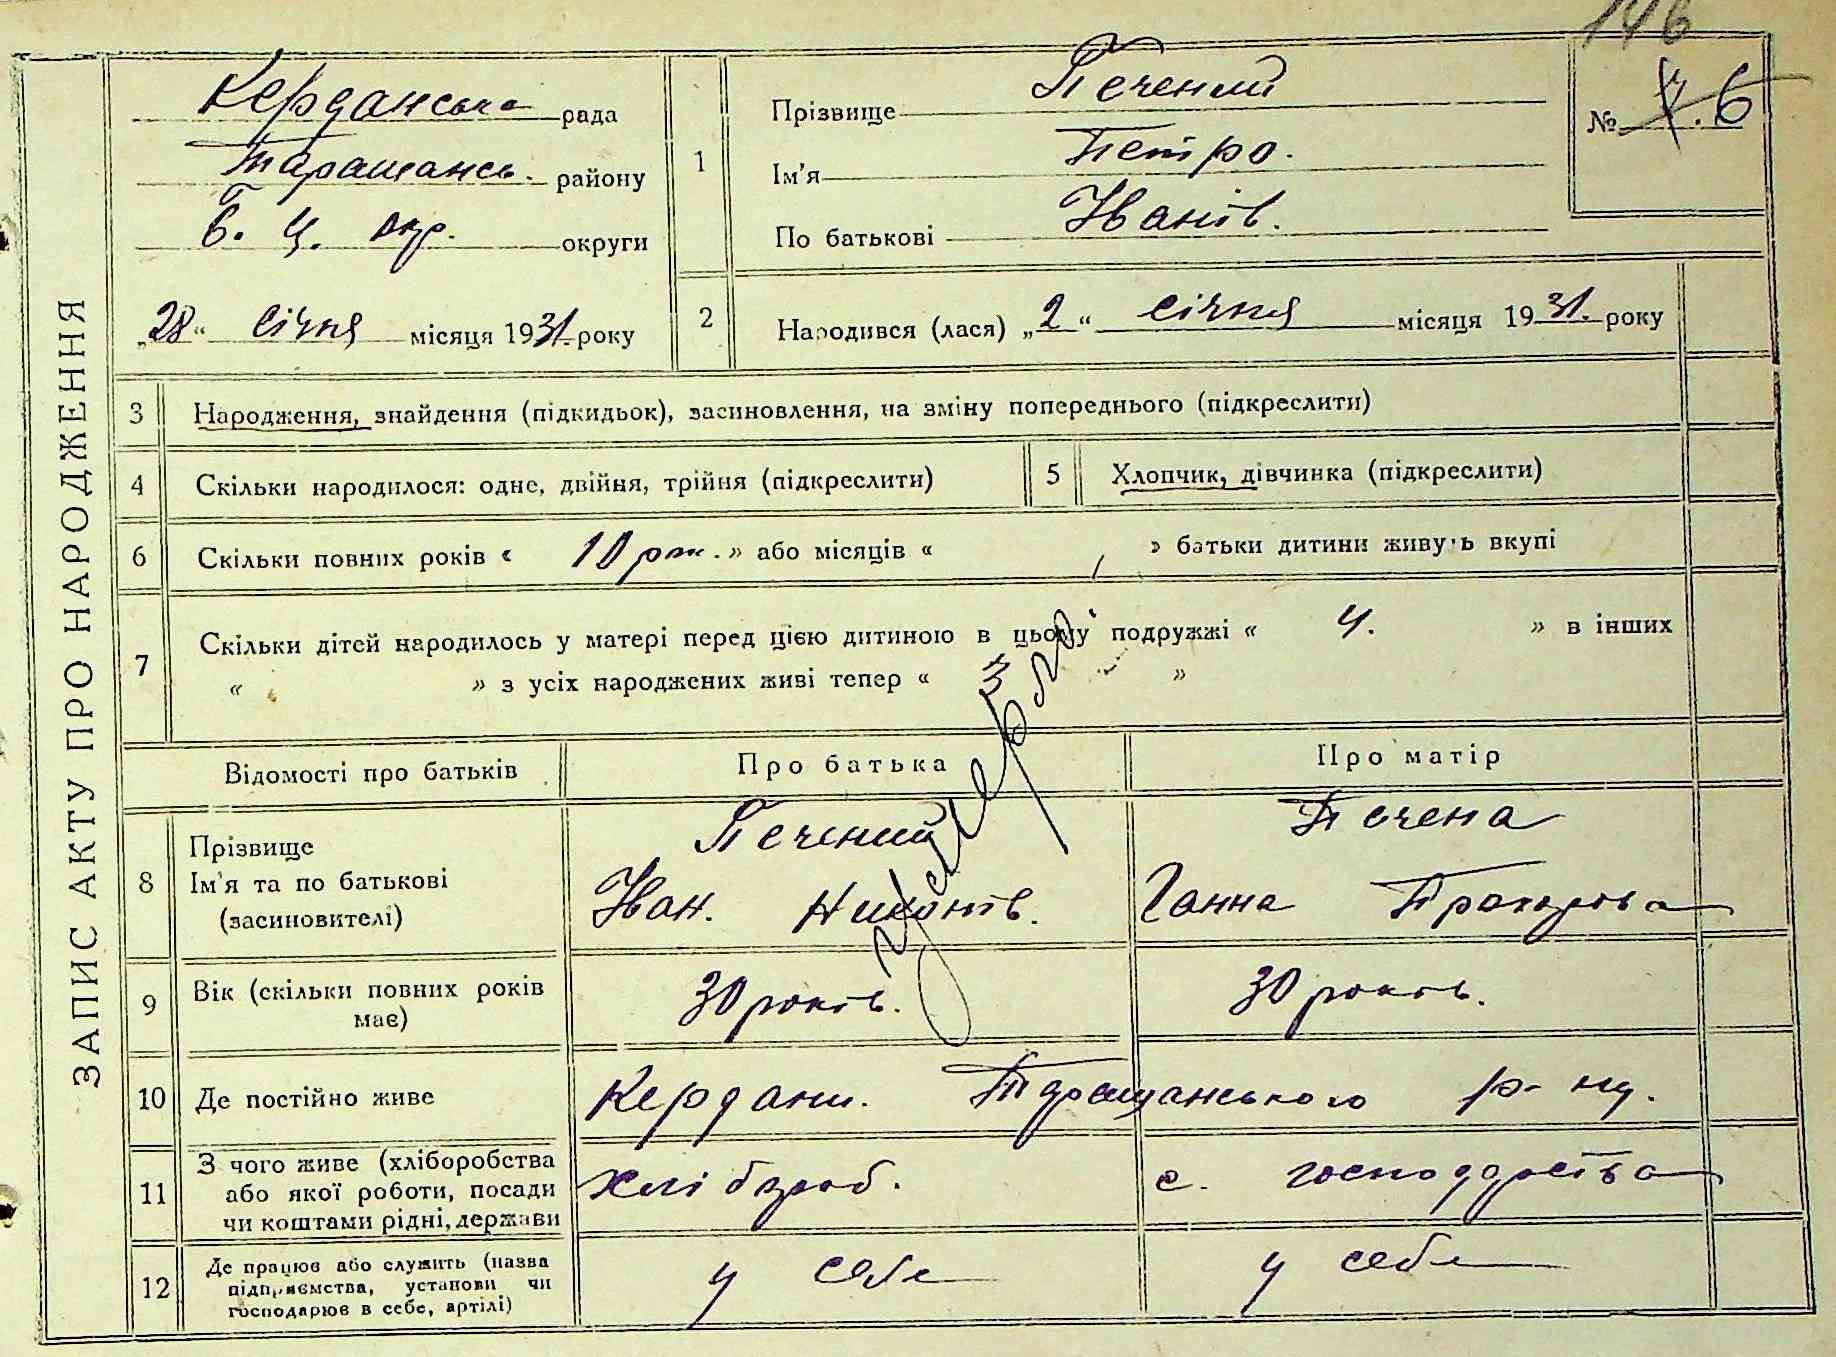 146
ЗАПИС АКТУ ПРО НАРОДЖЕННЯ
Керданська рада
Таращансь. району
Б. Ц. окр. округи
„28“ січня місяця 1931. року
1
Прізвище Печений
Ім'я Петро.
По батькові Іванів.
№ 6
2
Народився (лася) „2“ січня місяця 1931. року
3 Народження, знайдення (підкидьок), засиновлення, на зміну попереднього (підкреслити)
4 Скільки народилося: одне, двійня, трійня (підкреслити)
5 Хлопчик, дівчинка (підкреслити)
6 Скільки повних років « 10 рок. » або місяців « » батьки дитини живуть вкупі
7 Скільки дітей народилось у матері перед цією дитиною в цьому подружжі « 4. » в інших
« » з усіх народжених живі тепер « 3 »
Умерло
Відомості про батьків Про батька Про матір
8 Прізвище
Ім'я та по батькові
(засиновителі)
Печений
Іван.
Печена
Ганна Прохорова
9 Вік (скільки повних років
має)
30 років. 30 років.
10 Де постійно живе Кердани. Таращанського р-ну.
11 З чого живе (хліборобства
або якої роботи, посади
чи коштами рідні, держави
хлібороб. с. господарства
12 Де працює або служить (назва
підприємства, установи чи
господарює в себе, артілі)
у себе у себе